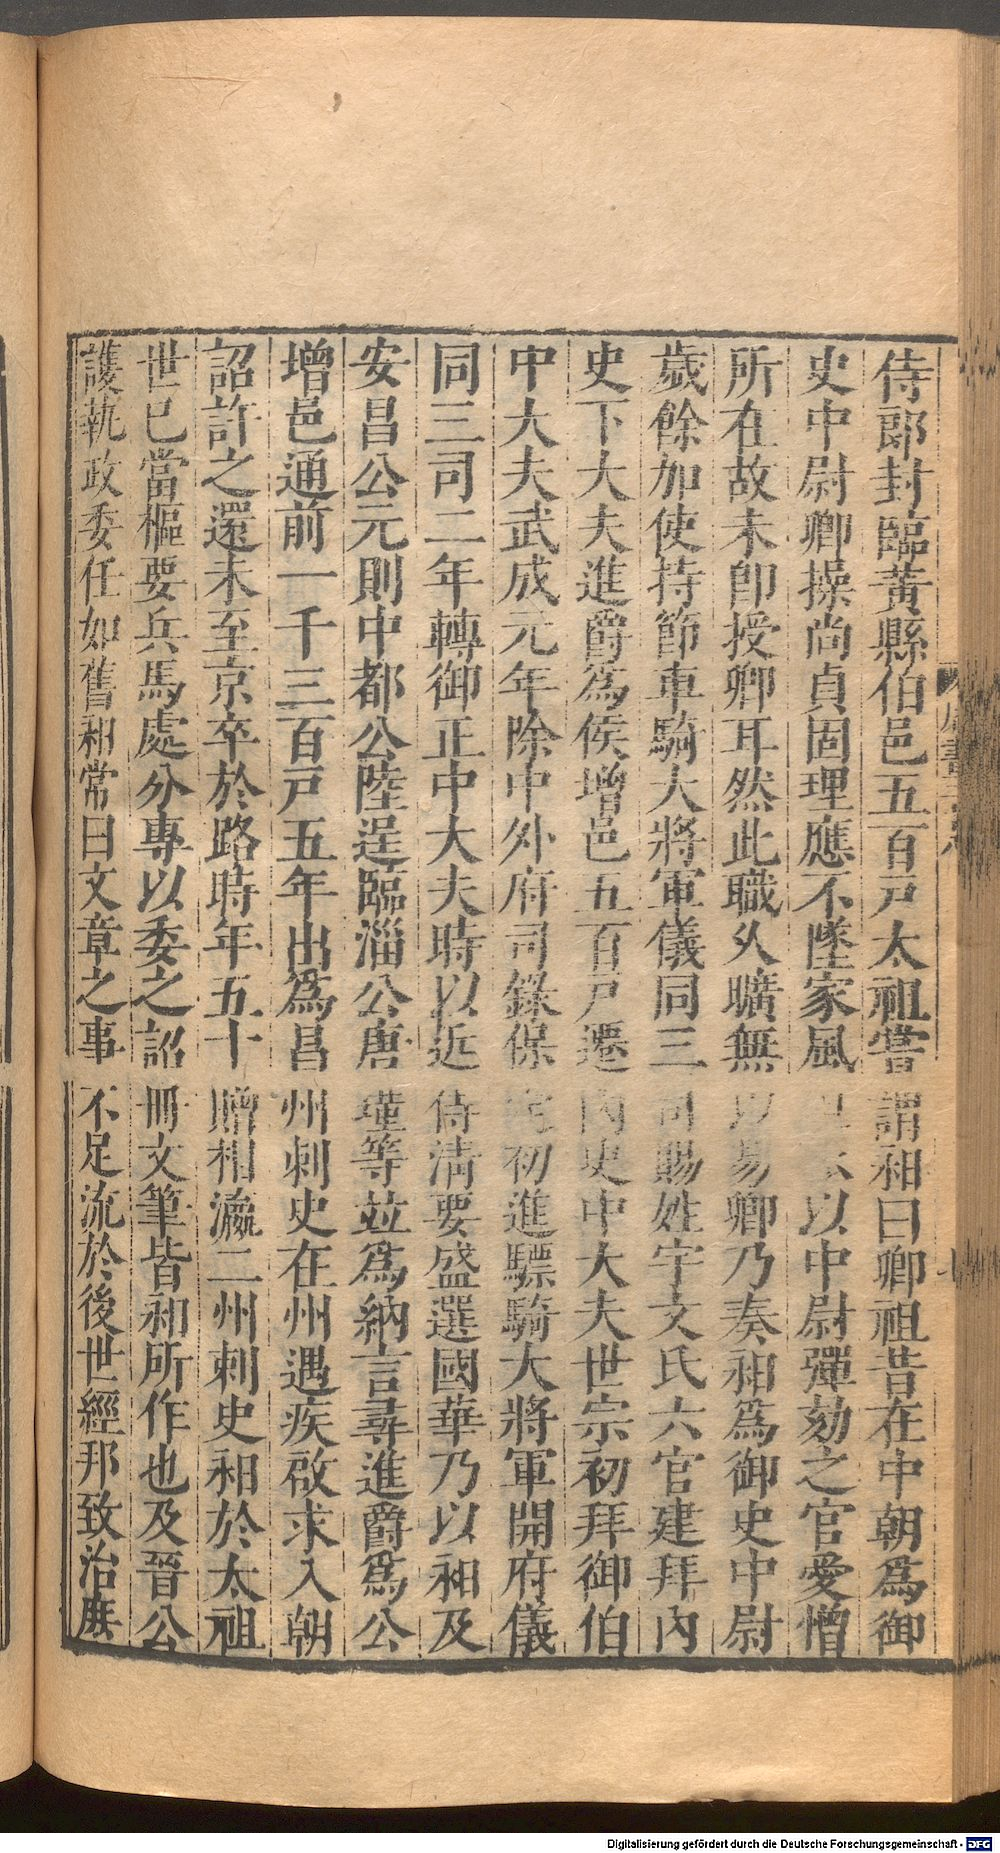 侍郎封臨黃縣伯邑五百戸太祖嘗謂昶曰卿祖昔在中朝爲御
史中尉卿操尚貞固理應不墜家風以中尉彈劾之官愛憎
所在故未卽授卿耳然此職久曠無以易卿乃奏昶爲御史中尉
歲餘加使持節車騎大將軍儀同三司賜姓宇文氏六官建拜內
史下大夫進爵爲侯增邑五百戸遷內史中大夫世宗初拜御伯
中大夫武成元年除中外府司錄保定初進驃騎大將軍開府儀
同三司二年轉御正中大夫時以近侍淸要盛選國華乃以昶及
安昌公元則中都公陸逞臨淄公唐瑾等並爲納言尋進爵爲公
增邑通前一千三百戸五年出爲昌州刺史在州遇疾啟求入朝
詔許之還未至京卒於路時年五十贈相瀛二州刺史昶於太祖
世已當樞要兵馬處分專以委之詔冊文筆皆昶所作也及晉公
護執政委任如舊昶常曰文章之事不足流於後世經邦致治庶
Digitalisierung gefördert durch die Deutsche Forschungsgemeinschaft - DFG